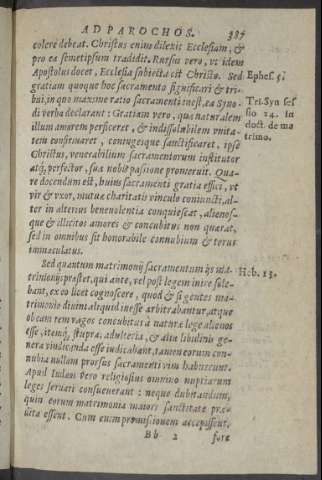 AD PAROCHOS. 387
colere debeat. Christus enim dilexit Ecclesiam, &
pro ea semetipsum tradidit. Rursus vero, vt idem
Apostolus docet, Ecclesia subiecta est Christo. Sed
Ephes. 5.
gratiam quoque hoc sacramento significari & tri-
bui, in quo maxime ratio sacramenti inest, ea Syno
di verba declarant: Gratiam vero, quæ naturalem
Tri. Syn ses
sio 24. in
doct. de ma
trimo.
illum amorem perficeret, & indissolubilem vnita-
tem confirmaret, coniugesque sanctificaret, ipse
Christus, venerabilium sacramentorum institutor
atq́; perfector, sua nobis passione promeruit. Qua-
re docendum est, huius sacramenti gratia effici, vt
vir & vxor, mutuæ charitatis vinculo coniuncti, al-
ter in alterius beneuolentia conquiescat, alienos-
que & illicitos amores & concubitus non quærat,
sed in omnibus sit honorabile connubium & torus
immaculatus.
Heb. 13.
Sed quantum matrimonij sacramentum ijs ma-
trimonijs præstet, qui ante, vel post legem inire sole-
bant, ex eo licet cognoscere, quod & si gentes ma-
trimonio diuini aliquid inesse arbitrabantur, atque
ob eam rem vagos concubitus à naturæ lege alienos
esse, itemq́; stupra, adulteria, & alia libidinis ge-
nera vindicanda esse iudicabant, tamen eorum con-
nubia nullam prorsus sacramenti vim habuerunt.
Apud Iudæos vero religiosius omnino nuptiarum
leges seruari consueuerant: neque dubitandum,
quin eorum matrimonia maiori sanctitate præ-
dita essent. Cum enim promissionem accepissent,
Bb 2 fore